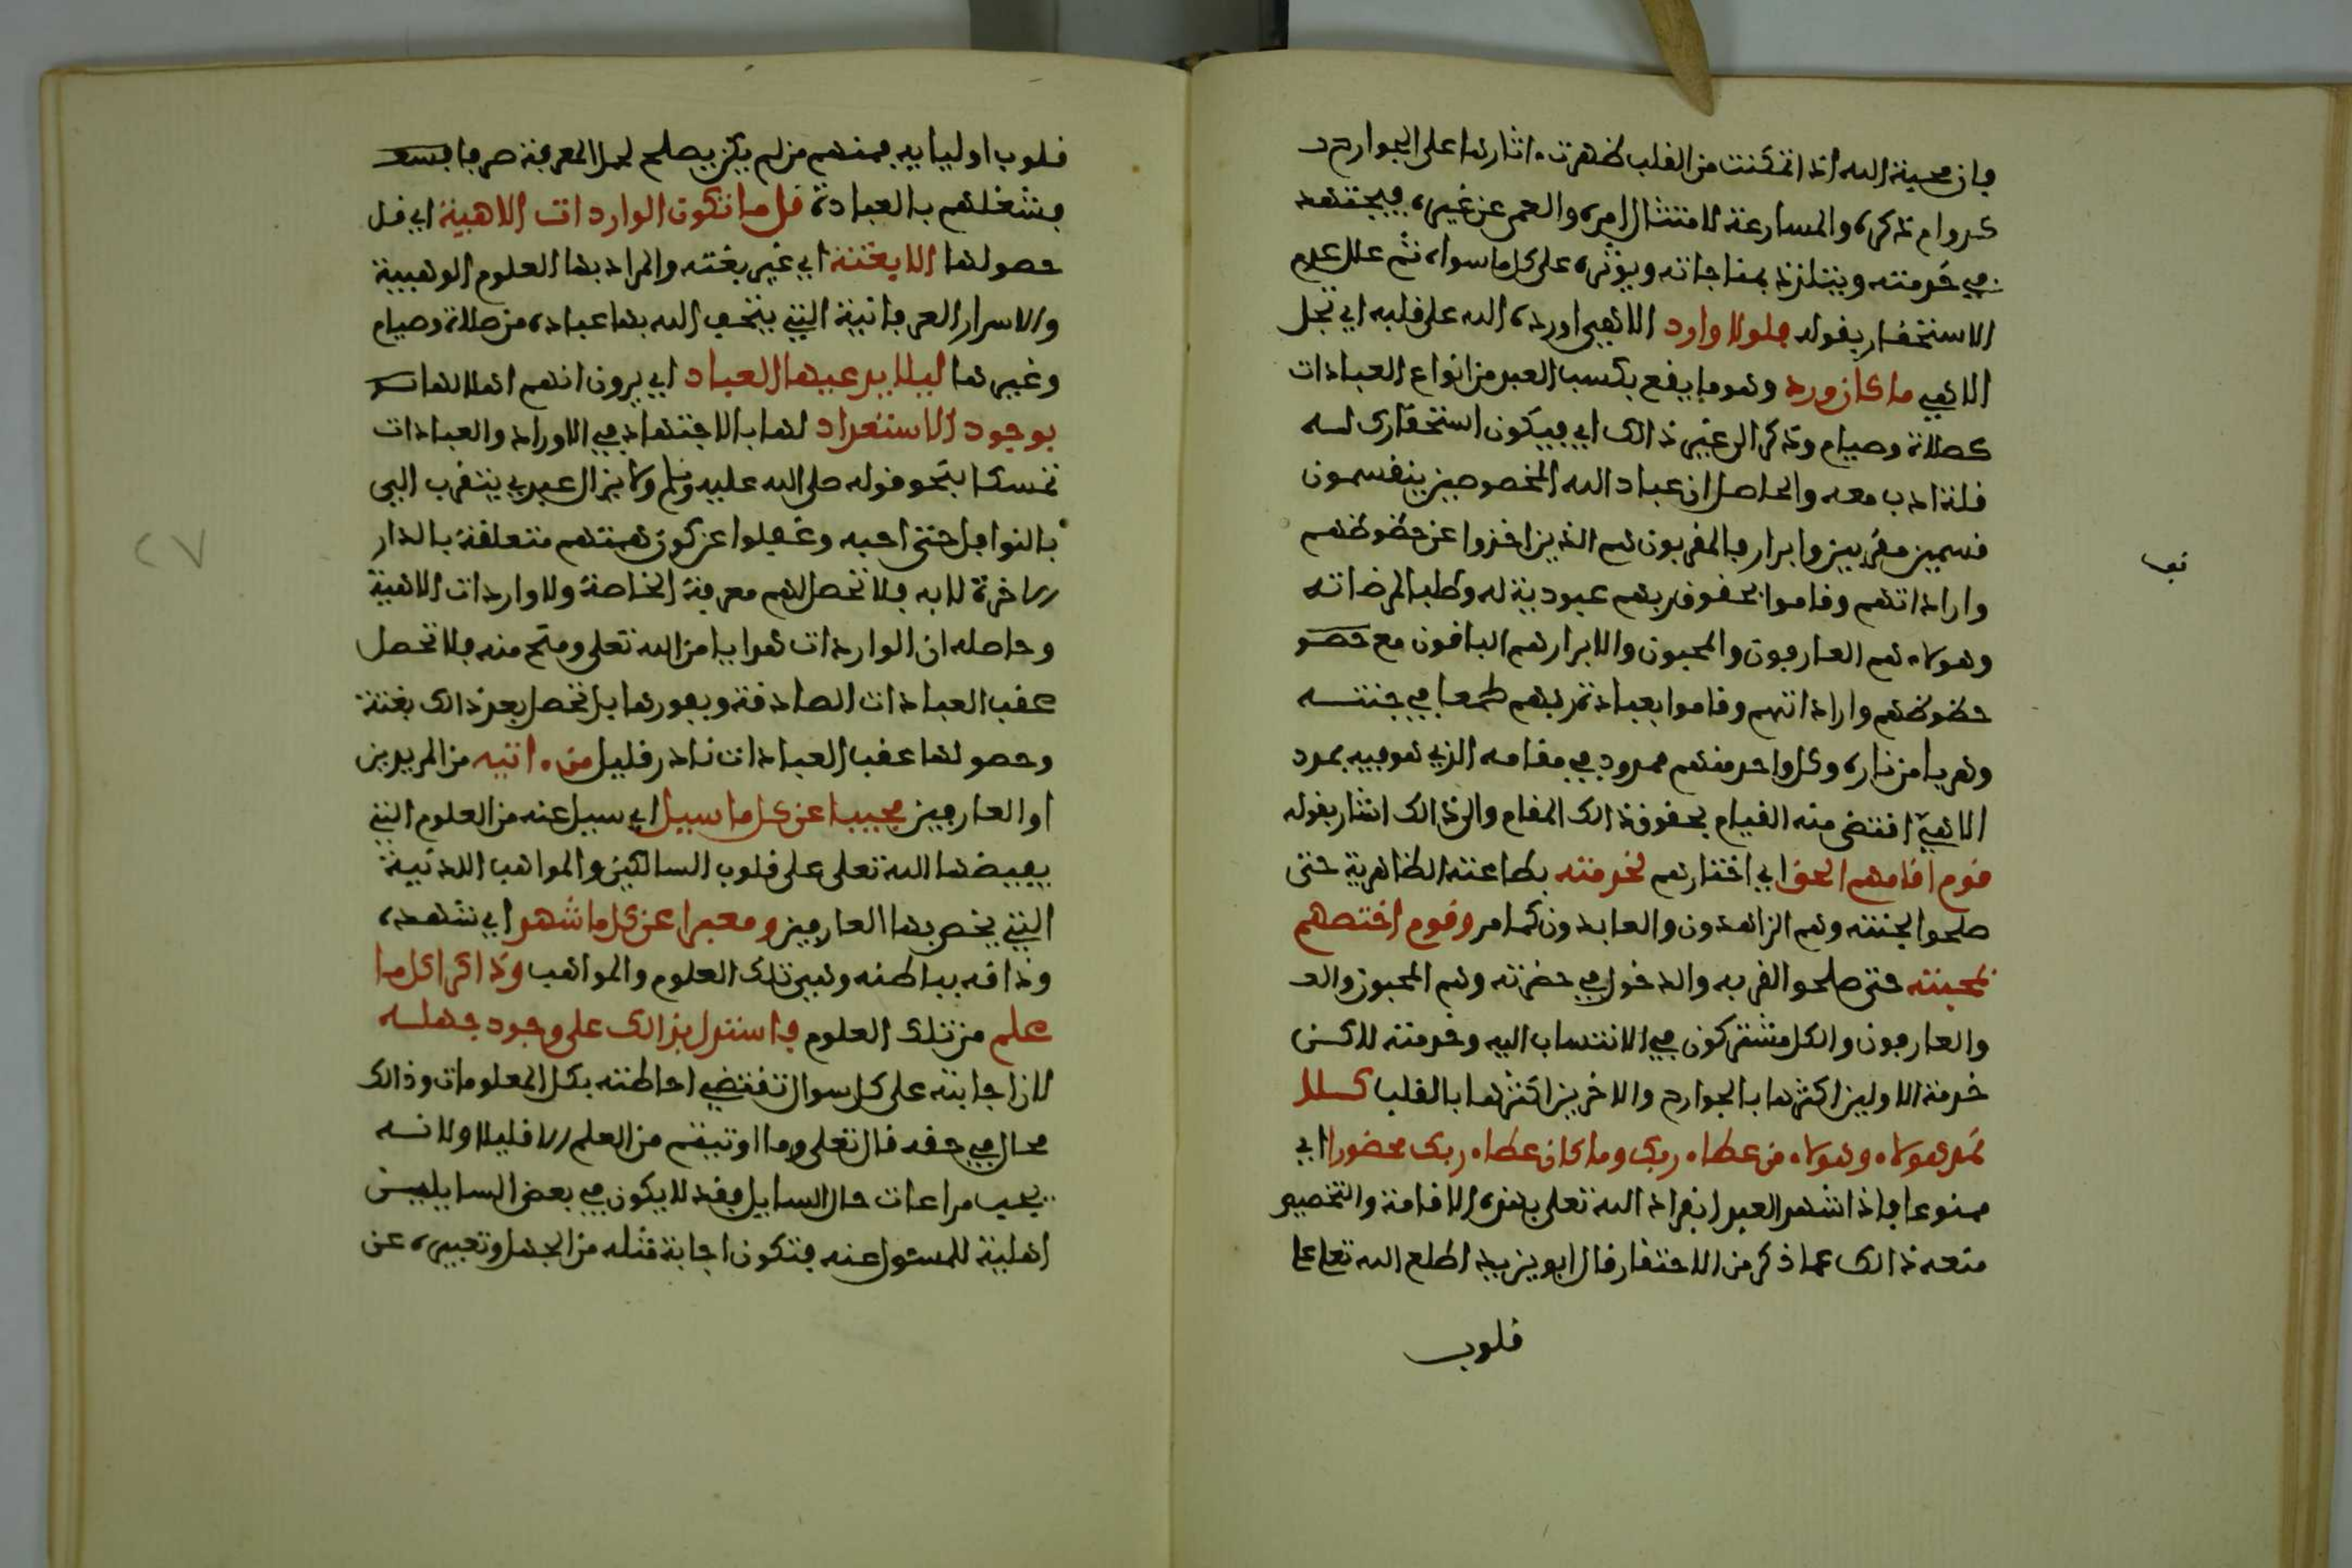 فإن محبة الله اذا تمكنت من القلب ظهرت ءاثارها على الجوارح د
كدوام ذكره والمسارعة لامتثال امره والعمى عن غيره فيجتهد
في خدمته ويتلذذ بمناجاته ويؤثره على كل ما سواه ثم علل عدم
الاستحقار بقوله فلولا وارد الاهي اورده الله على قلبه اي تجل
الاهي ما كان ورد وهو ما يقع بكسب العبد من انواع العبادات
كصلاة وصيام وذكر الى غير ذالك اي فيكون استحقارك له
قلة ادب معه والحاصل ان عباد الله المخصوصين ينقسمون
قسمين مقربين وابرار فالمقربون هم الذين اخذوا عن حظوظهم
واراداتهم وقاموا بحقوق ربهم عبودية له وطلبا لمرضاته
وهولاء هم العارفون والمحبون والابرار هم الباقون مع حصو
حظوظهم واراداتهم وقاموا بعبادة ربهم طمعا في جنته
وهربا من ناره وكل واحد منهم ممدود في مقامه الذي هو فيه بمدد
الاهي اقتضى منه القيام بحقوق ذالك المقام والى ذالك اشار بقوله
قوم اقامهم الحق اي اختارهم لخدمته بطاعته الظاهرية حتى
صلحوا لجنته وهم الزاهدون والعابدون كما مر وقوم اختصهم
لمحبته حتى صلحوا لقربه والدخول في حضرته وهم المحبون والعـ
والعارفون والكل مشتركون في الانتساب اليه وخدمته لاكن
خدمة الاولين اكثرها بالجوارح والاخرين اكثرها بالقلب كلا
نمد هولاء وهولاء من عطاء ربك وما كان عطاء ربك محضورا اي
ممنوعا فاذا اشهد العبد انفراد الله تعلى بهذه الاقامة والتخصيص
منعه ذالك عما ذكر من الاحتقار قال ابو يزيد اطلع الله تعلى على
قلوب
قلوب اوليايه فمنهم من لم يكن يصلح لحمل المعرفة صرفا فسعـ
فشغلهم بالعبادة قل ما تكون الواردات الاهية اي قل
حصولها الا بغتة اي غير بغته والمراد بها العلوم الوهبية
والاسرار العرفانية التي يتحف الله بها عباده من صلاة وصيام
وغيرها ليلا يدعيها العباد اي يرون انهم اهلا لها
بوجود الاستعداد لها بالاجتهاد في الاوراد والعبادات
تمسكا بنحو قوله صلى الله عليه وسلم ولا يزال عبدي يتقرب الي
بالنوافل حتى احبه وغفلوا عن كون همتهم متعلقة بالدار
الاخرة لا به فلا تحصل لهم معرفة الخاصة ولا واردات الاهية
وحاصله ان الواردات هدايا من الله تعلى ومنح منه فلا تحصل
عقب العبادات الصادقة وبفورها بل تحصل بعد ذالك بغتة
وحصولها عقب العبادات نادر قليل من رءاتيه من المريدين
او العارفين مجيبا عن كل ما سيل اي سيل عنه من العلوم التي
يفيضها الله تعلى على قلوب السالكين والمواهب اللدنية
التي يخص بها العارفين ومعبرا عن كل ما شهد اي شهده
وذاقه بباطنه وهي تلك العلوم والمواهب وذاكرا كل ما
علم من تلك العلوم فاستدل بذالك على وجود جهله
لان اجابته على كل سوال تقتضي احاطته بكل المعلومات وذالك
محال في حقه قال تعلى وما اوتيتم من العلم الا قليلا ولانه
يجب مراعات حال السايل فقد لا يكون في بعض السايلين
اهلية للمسئول عنه فتكون اجابة مثله من الجهل وتعبيره عن
٢٧